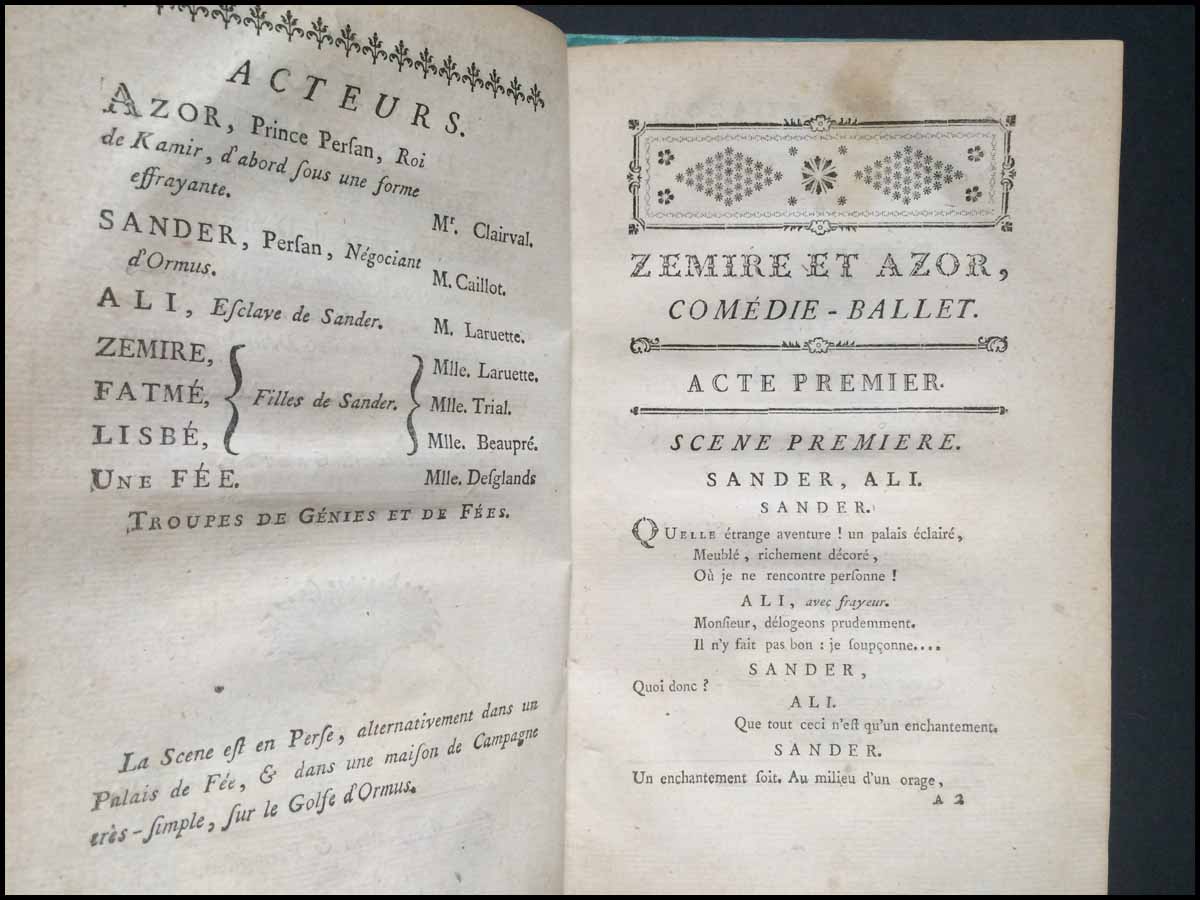 ACTEURS.
AZOR, Prince Perſan, Roi
de Kamir, d'abord ſous une forme
effrayante. Mr. Clairval.
SANDER, Perſan, Négociant
d'Ormus. M. Caillot.
ALI, Eſclave de Sander. M. Laruette.
ZEMIRE, Mlle. Laruette.
FATMÉ, Filles de Sander. Mlle. Trial.
LISBÉ, Mlle. Beaupré.
UNE FÉE. Mlle. Deſglands
TROUPES DE GÉNIES ET DE FÉES.
La Scene eſt en Perſe, alternativement dans un
Palais de Fée, & dans une maiſon de Campagne
très-ſimple, ſur le Golfe d'Ormus.
ZEMIRE ET AZOR,
COMÉDIE-BALLET.
ACTE PREMIER.
SCENE PREMIERE.
SANDER, ALI.
SANDER.
QUELLE étrange aventure ! un palais éclairé,
Meublé, richement décoré,
Où je ne rencontre perſonne !
ALI, avec frayeur.
Monſieur, délogeons prudemment.
Il n'y fait pas bon : je ſoupçonne....
SANDER,
Quoi donc ?
ALI.
Que tout ceci n'eſt qu'un enchantement.
SANDER.
Un enchantement ſoit. Au milieu d'un orage,
A 2